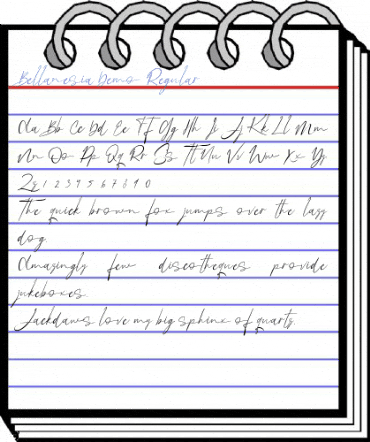 Bellanesia Demo Regular
Aa Bb Cc Dd Ee Ff Gg Hh Ii Jj Kk Ll Mm
Nn Oo Pp Qq Rr Ss Tt Uu Vv Ww Xx Yy
Zz 1 2 3 4 5 6 7 8 9 0
The quick brown fox jumps over the lazy
dog.
Amazingly few discotheques provide
jukeboxes.
Jackdaws love my big sphinx of quartz.